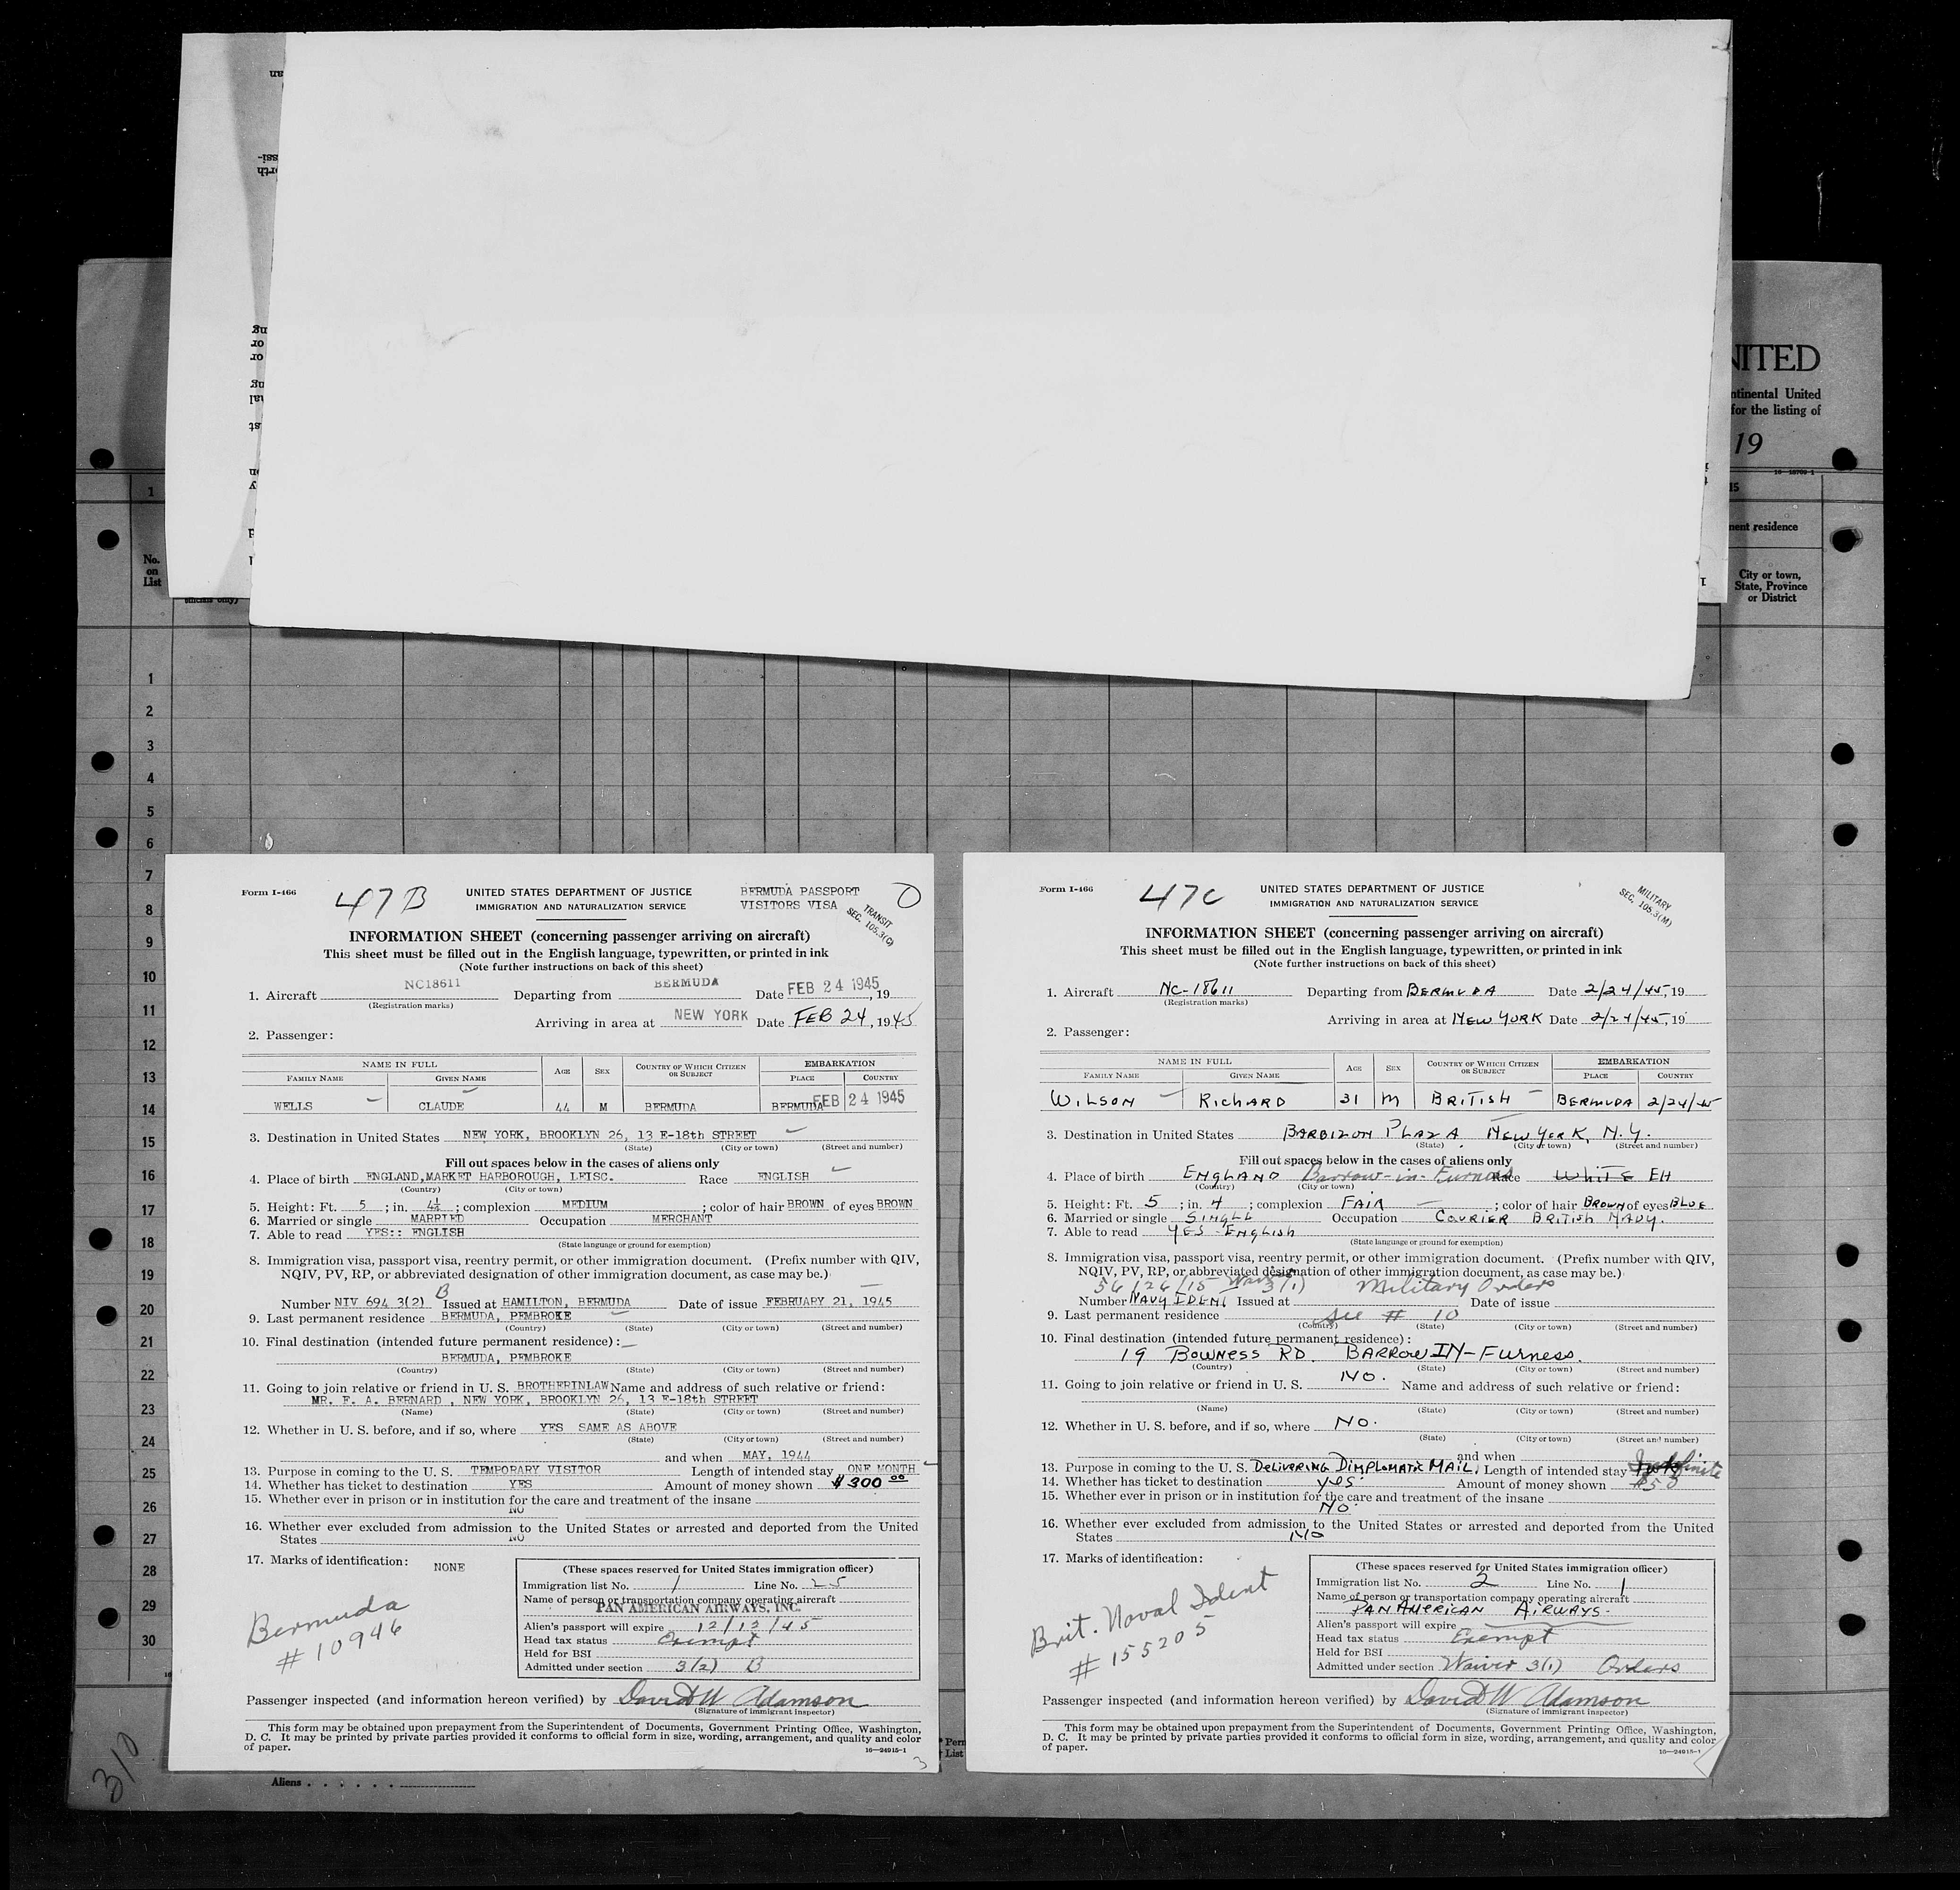 NITED
ntinental United
for the listing of
19
16—18709-1
1
No.
on
List
nent residence
City or town,
State, Province
or District
1
2
3
4
5
6
7
8
9
10
11
12
13
14
15
16
17
18
19
20
21
22
23
24
25
26
27
28
29
30
310
Aliens
Form I-466
47B
UNITED STATES DEPARTMENT OF JUSTICE
IMMIGRATION AND NATURALIZATION SERVICE
BERMUDA PASSPORT
VISITORS VISA
TRANSIT
SEC. 105.3(C)
INFORMATION SHEET (concerning passenger arriving on aircraft)
This sheet must be filled out in the English language, typewritten, or printed in ink
(Note further instructions on back of this sheet)
1. Aircraft NC18611 Departing from BERMUDA Date FEB 24 1945, 19
(Registration marks)
Arriving in area at NEW YORK Date FEB 24, 1945
2. Passenger:
NAME IN FULL AGE SEX COUNTRY OF WHICH CITIZEN OR SUBJECT EMBARKATION
FAMILY NAME GIVEN NAME PLACE COUNTRY
WELLS CLAUDE 44 M BERMUDA BERMUDA FEB 24 1945
3. Destination in United States NEW YORK, BROOKLYN 26, 13 E-18th STREET
(State) (City or town) (Street and number)
Fill out spaces below in the cases of aliens only
4. Place of birth ENGLAND, MARKET HARBOROUGH, LEISC. Race ENGLISH
(Country) (City or town)
5. Height: Ft. 5 ; in. 4½ ; complexion MEDIUM ; color of hair BROWN of eyes BROWN
6. Married or single MARRIED Occupation MERCHANT
7. Able to read YES:: ENGLISH
(State language or ground for exemption)
8. Immigration visa, passport visa, reentry permit, or other immigration document. (Prefix number with QIV,
NQIV, PV, RP, or abbreviated designation of other immigration document, as case may be.)
Number NIV 694 3(2) B Issued at HAMILTON, BERMUDA Date of issue FEBRUARY 21, 1945
9. Last permanent residence BERMUDA, PEMBROKE
(Country) (State) (City or town) (Street and number)
10. Final destination (intended future permanent residence):
BERMUDA, PEMBROKE
(Country) (State) (City or town) (Street and number)
11. Going to join relative or friend in U. S. BROTHERINLAW Name and address of such relative or friend:
MR. F. A. BERNARD , NEW YORK, BROOKLYN 26, 13 E-18th STREET
(Name) (State) (City or town) (Street and number)
12. Whether in U. S. before, and if so, where YES SAME AS ABOVE
(State) (City or town) (Street and number)
and when MAY, 1944
13. Purpose in coming to the U. S. TEMPORARY VISITOR Length of intended stay ONE MONTH
14. Whether has ticket to destination YES Amount of money shown $300 00
15. Whether ever in prison or in institution for the care and treatment of the insane
NO
16. Whether ever excluded from admission to the United States or arrested and deported from the United
States NO
17. Marks of identification: NONE
Bermuda
# 10946
(These spaces reserved for United States immigration officer)
Immigration list No. 1 Line No. 25
Name of person or transportation company operating aircraft
PAN AMERICAN AIRWAYS, INC.
Alien's passport will expire 12/12/45
Head tax status Exempt
Held for BSI
Admitted under section 3(2) B
Passenger inspected (and information hereon verified) by David W Adamson
(Signature of immigrant inspector)
This form may be obtained upon prepayment from the Superintendent of Documents, Government Printing Office, Washington,
D. C. It may be printed by private parties provided it conforms to official form in size, wording, arrangement, and quality and color
of paper.
16—24915-1
3
Form I-466
47C
UNITED STATES DEPARTMENT OF JUSTICE
IMMIGRATION AND NATURALIZATION SERVICE
MILITARY
SEC. 105.3(M)
INFORMATION SHEET (concerning passenger arriving on aircraft)
This sheet must be filled out in the English language, typewritten, or printed in ink
(Note further instructions on back of this sheet)
1. Aircraft NC-18611 Departing from BERMUDA Date 2/24/45, 19
(Registration marks)
Arriving in area at NEW YORK Date 2/24/45, 19
2. Passenger:
NAME IN FULL AGE SEX COUNTRY OF WHICH CITIZEN OR SUBJECT EMBARKATION
FAMILY NAME GIVEN NAME PLACE COUNTRY
WILSON RICHARD 31 M BRITISH BERMUDA 2/24/45
3. Destination in United States BARBIZON PLAZA NEW YORK, N.Y.
(State) (City or town) (Street and number)
Fill out spaces below in the cases of aliens only
4. Place of birth ENGLAND Barrow-in-Furness Race White EH
(Country) (City or town)
5. Height: Ft. 5 ; in. 4 ; complexion FAIR ; color of hair BROWN of eyes BLUE
6. Married or single SINGLE Occupation COURIER BRITISH NAVY.
7. Able to read YES - ENGLISH
(State language or ground for exemption)
8. Immigration visa, passport visa, reentry permit, or other immigration document. (Prefix number with QIV,
NQIV, PV, RP, or abbreviated designation of other immigration document, as case may be.)
56/26/15 Waiver 3(1) Military Orders
Number NAVY IDENT Issued at Date of issue
9. Last permanent residence See # 10
(Country) (State) (City or town) (Street and number)
10. Final destination (intended future permanent residence):
19 BOWNESS RD. BARROW IN-FURNESS.
(Country) (State) (City or town) (Street and number)
11. Going to join relative or friend in U. S. NO. Name and address of such relative or friend:
(Name) (State) (City or town) (Street and number)
12. Whether in U. S. before, and if so, where NO.
(State) (City or town) (Street and number)
and when
13. Purpose in coming to the U. S. DELIVERING DIMPLOMATIC MAIL. Length of intended stay Indefinite
14. Whether has ticket to destination YES Amount of money shown $50
15. Whether ever in prison or in institution for the care and treatment of the insane
NO.
16. Whether ever excluded from admission to the United States or arrested and deported from the United
States NO
17. Marks of identification:
Brit. Naval Ident
# 155205
(These spaces reserved for United States immigration officer)
Immigration list No. 2 Line No. 1
Name of person or transportation company operating aircraft
PAN AMERICAN AIRWAYS.
Alien's passport will expire
Head tax status Exempt
Held for BSI
Admitted under section Waiver 3(1) Orders
Passenger inspected (and information hereon verified) by David W Adamson
(Signature of immigrant inspector)
This form may be obtained upon prepayment from the Superintendent of Documents, Government Printing Office, Washington,
D. C. It may be printed by private parties provided it conforms to official form in size, wording, arrangement, and quality and color
of paper.
16—24915-1